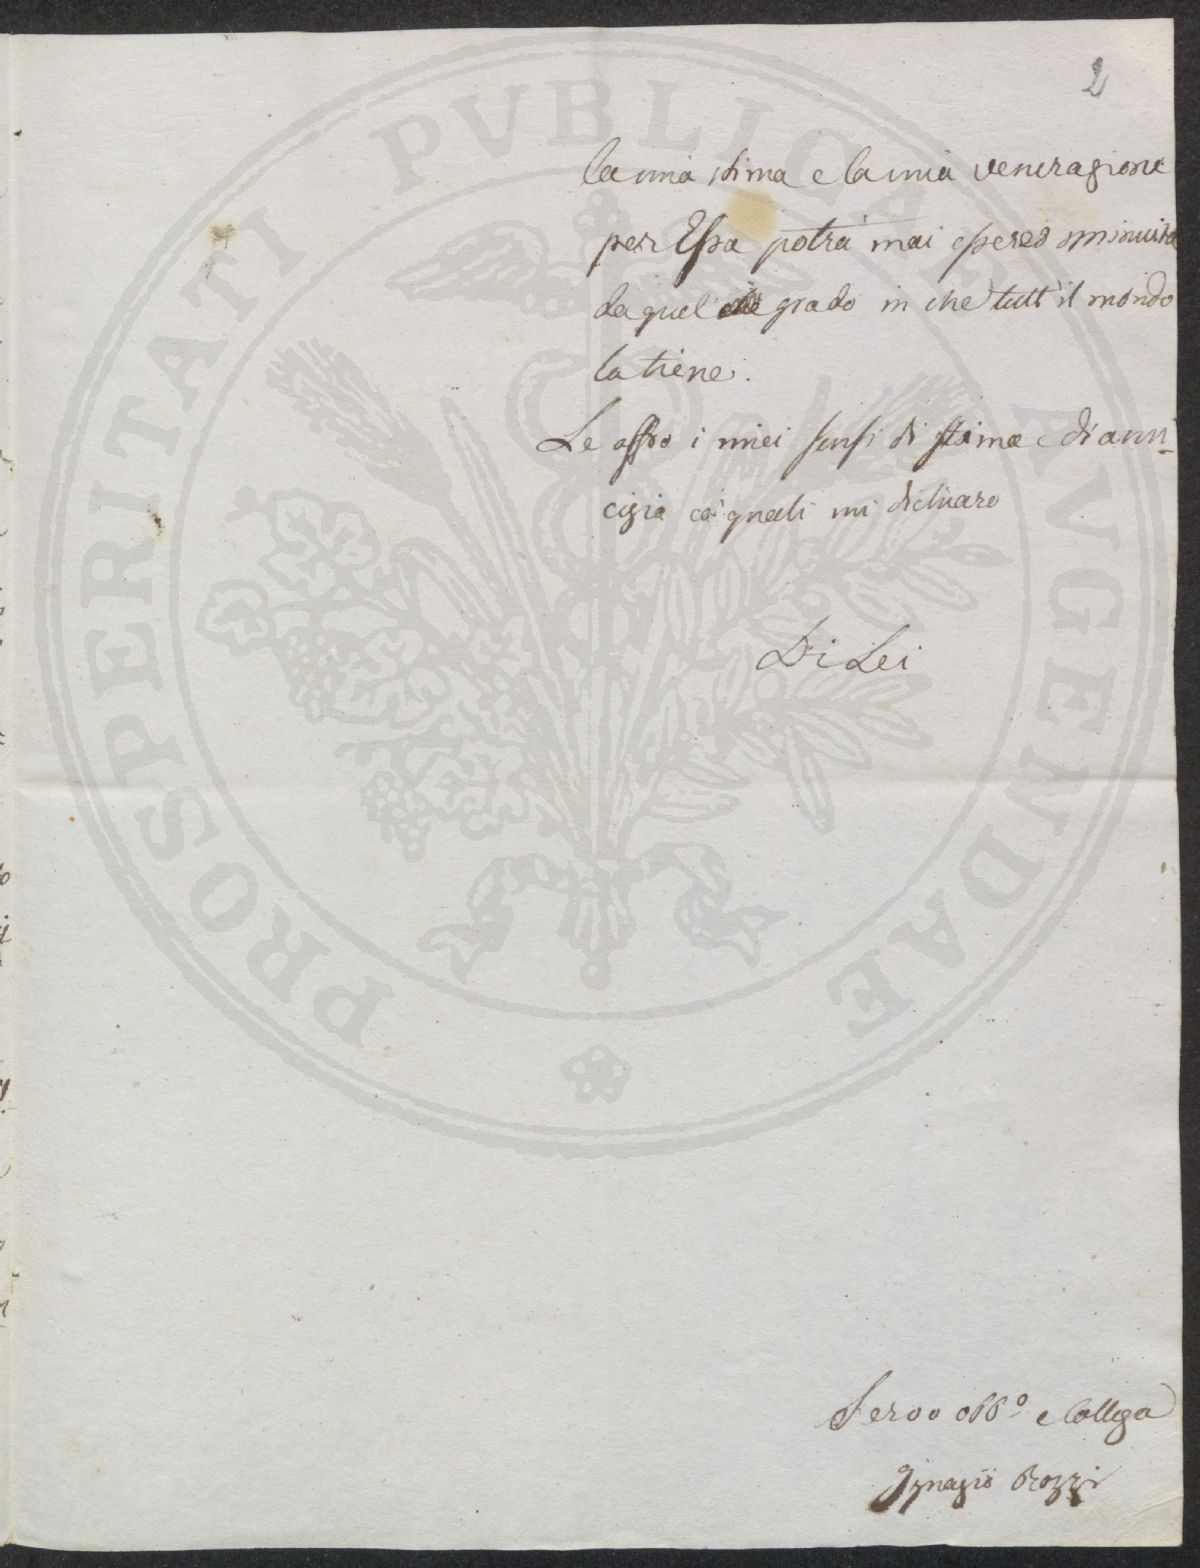 2
la mia stima e la mia venerazione
per Essa potrà mai essere sminuita
da quel grado in che tutt'il mondo
la tiene.
Le offro i miei sensi di stima e di ami-
cizia co' quali mi dichiaro
Di Lei
Servo obb.o e Collega
Ignazio Rozzi
PROSPERITATI PVBLICAE AVGENDAE